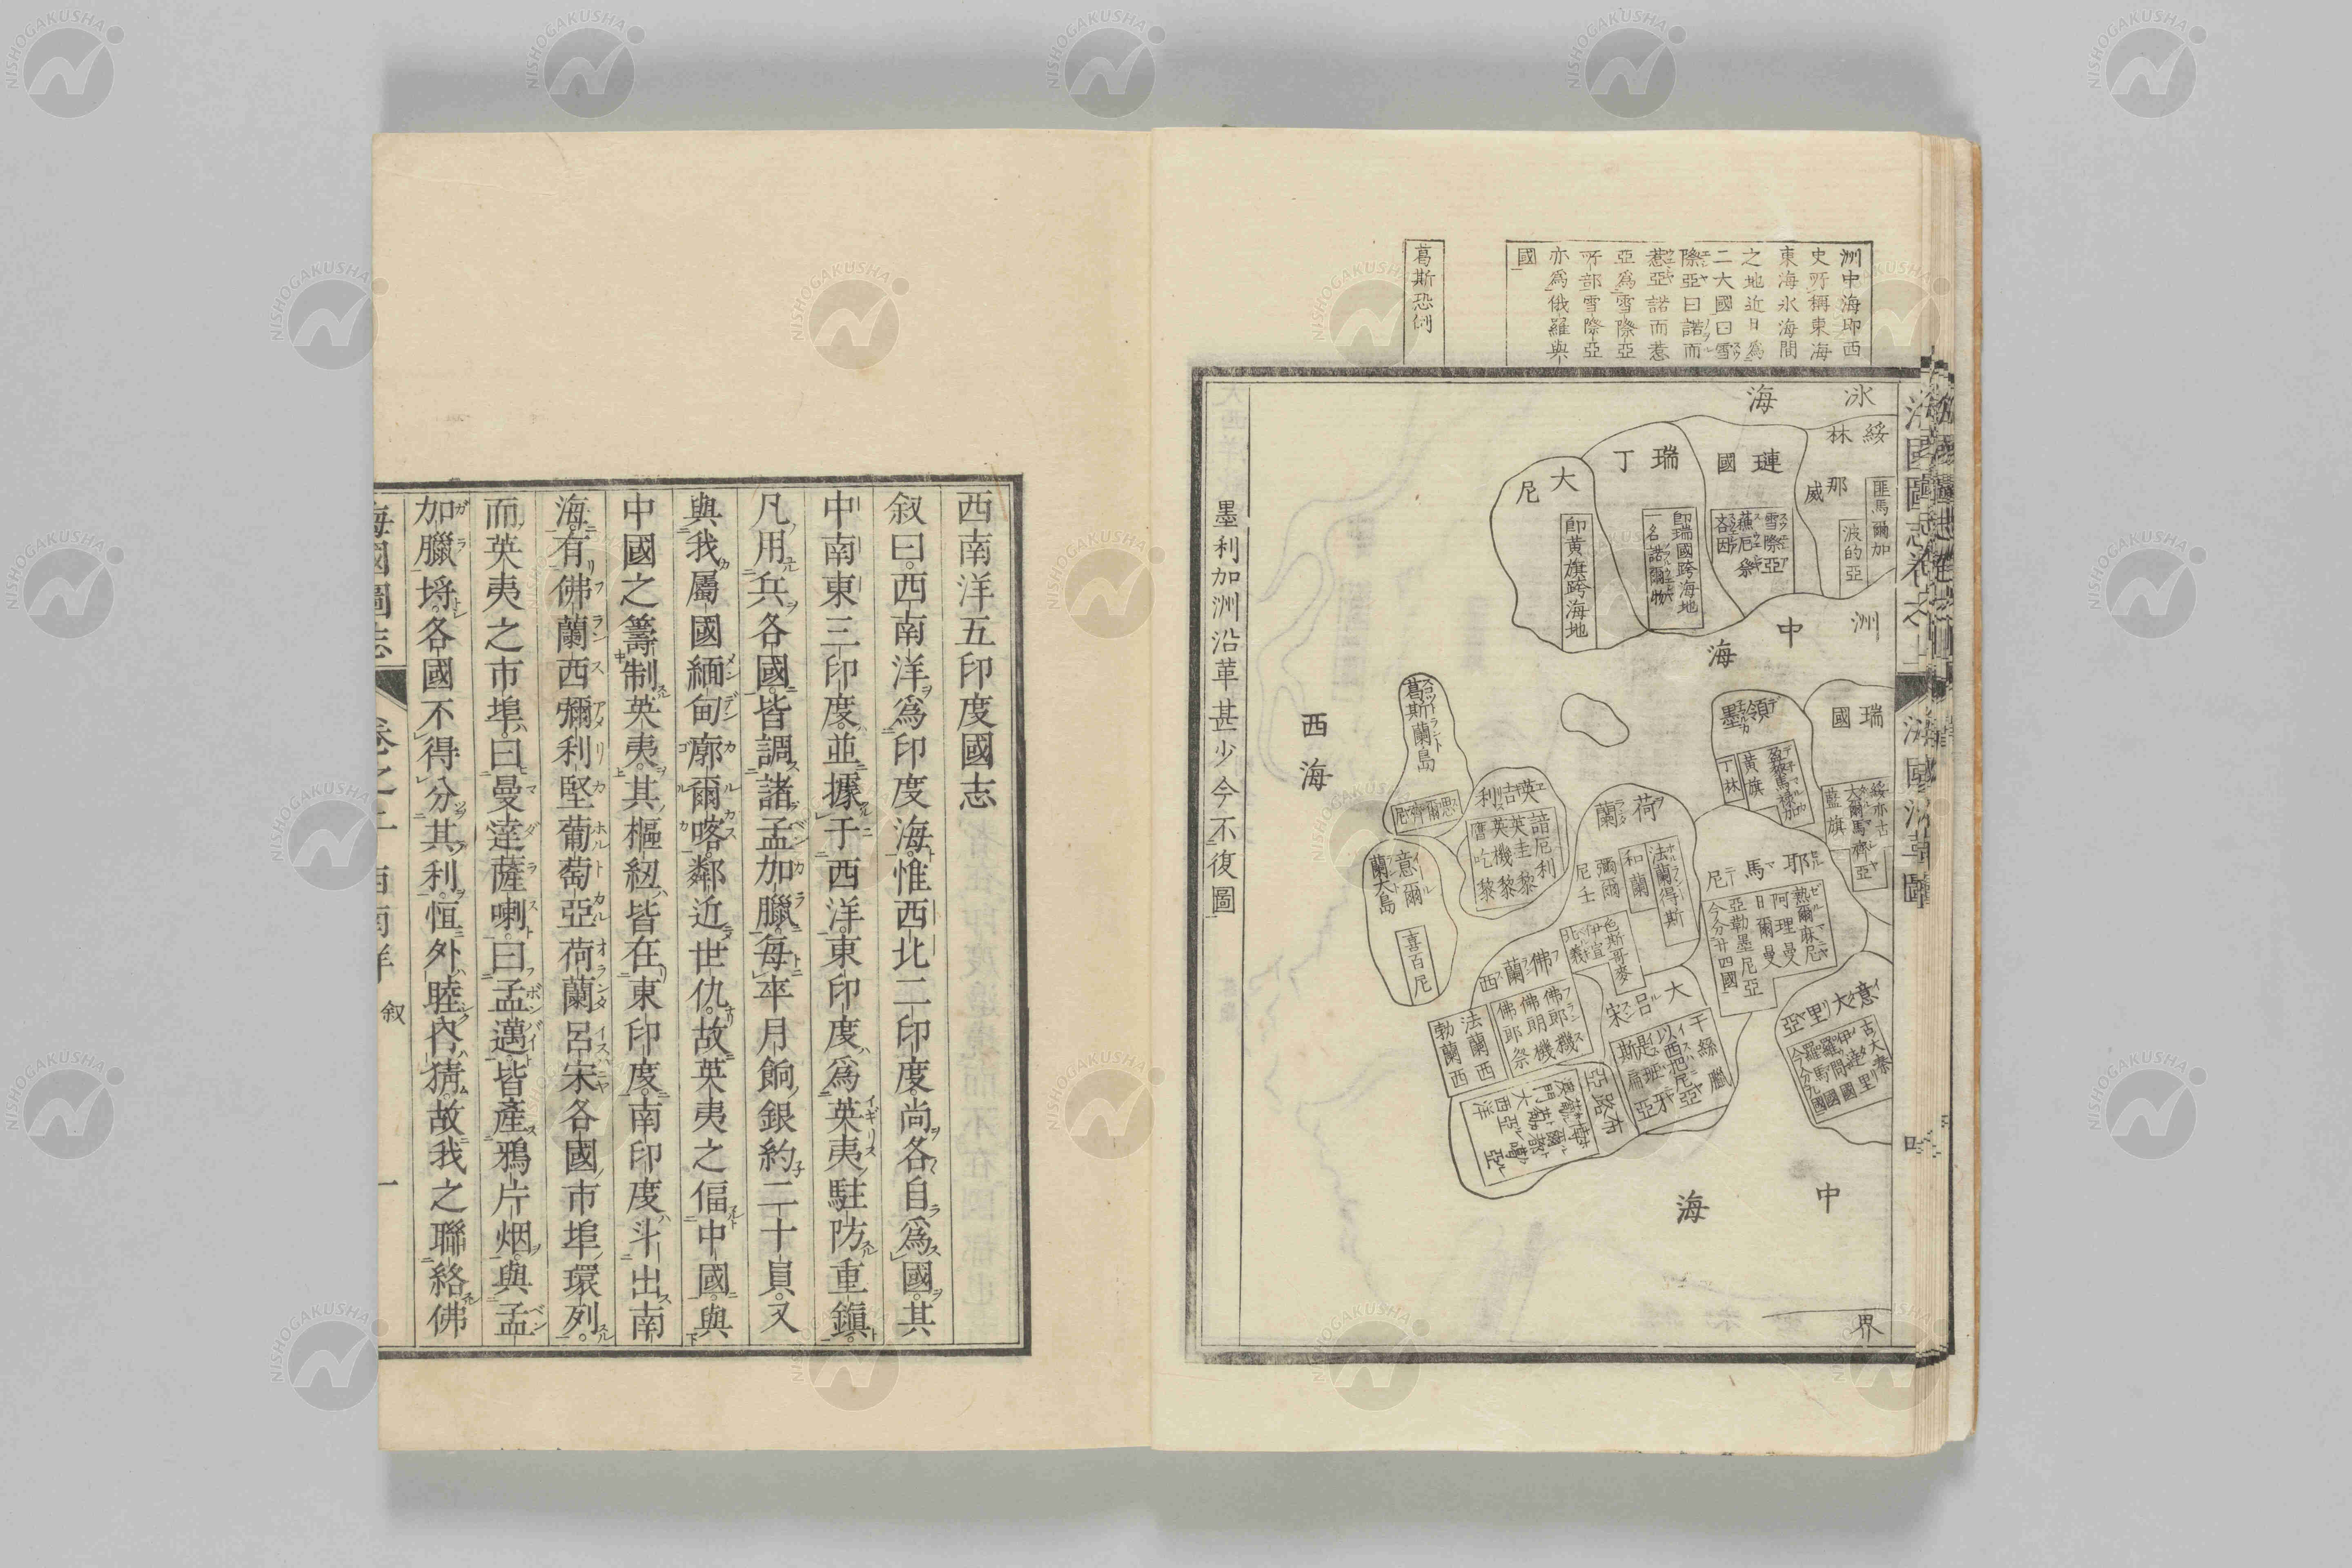 洲中海即西
史所稱東海
東海氷海間
之地近日為
二大國曰雪
際亞曰諾而
惹亞諾而惹
亞為雪際亞
所部雪際亞
亦為俄羅與
國
葛斯恐倒
氷海
綏林
那威
匪馬爾加
波的亞
璉國
雪際亞
蘇厄祭
瑞丁
即瑞國跨海地
一名諾爾物
大尼
即黄旗跨海地
洲中海
瑞國
綏亦古
大爾馬齊亞
藍旗
領墨
盈黎馬祿加
黄旗
丁林
葛斯蘭島
思爾齊尼
西海
英吉利
諳厄利
英圭黎
英機黎
膺吃黎
意爾蘭大島
喜百尼
荷蘭
法蘭得斯
和蘭
彌爾尼壬
色斯哥麥
伊宣
北義
耶馬尼
熱爾麻尼
阿理曼
日爾曼
亞勒墨尼亞
今分廿四國
佛蘭西
佛郎機
佛朗機
佛郎祭
法蘭西
勃蘭西
大呂宋
干絲臘
以西把尼亞
是班牙
斯扁亞
布路亞
大西洋
意大里亞
古大秦
伊達里
羅問國
羅馬國
今分九國
中海
界
墨利加洲沿革甚少今不復圖
海國沿革圖
西南洋五印度國志
叙曰西南洋爲印度海惟西北二印度尚各自爲國其
中南東三印度並據于西洋東印度爲英夷駐防重鎭
凡用兵各國皆調諸孟加臘每年月餉銀約二十員又
與我屬國緬甸廓爾喀鄰近世仇故英夷之偪中國與
中國之籌制英夷其樞紐皆在東印度南印度斗出南
海有佛蘭西彌利堅葡萄亞荷蘭呂宋各國市埠環列
而英夷之市埠曰曼達薩喇曰孟邁皆產鴉片烟與孟
加臘埒各國不得分其利恒外睦內猜故我之聯絡佛
海國圖志 卷之 西南洋 叙 一